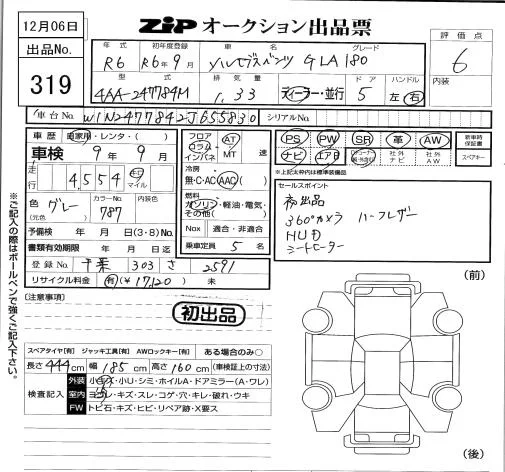 12月06日
出品No.
319
ZIP オークション出品票
評価点
6
内装
年式 初年度登録 車名 グレード
R6 R6年9月 メルセデスベンツ GLA180
型式 排気量 ドア ハンドル
4AA-247784M 1.33 ディーラー・並行 5 左 右
車台No. W1N2477842J655830 シリアルNo.
車歴 自家用・レンタ・( )
車検 9年 9月
走行 4,554 キロ マイル
色 (元色) グレー カラーNo. 787 内装色
予備検 年 月 日(3・8)No.
書類有効期限 年 月 日迄
登録No. 千葉 303 さ 2591
リサイクル料金 有(¥17,120) 未
フロア コラム インパネ AT MT 速
冷房 無・C・AC・AAC( )
燃料 ガソリン・軽油・電気・その他( )
Nox 適合・非適合
乗車定員 5 名
PS PW SR 革 AW
ナビ エアB 社外ナビ 社外AW
新車時保証書
スペアキー
※上記太枠内は標準装備品
セールスポイント
初出品
360°カメラ ハーフレザー
HUD
シートヒーター
(注意事項)
初出品
スペアタイヤ[有] ジャッキ工具[有] AWロックキー[有] ある場合のみ○
長さ 444cm 幅 185cm 高さ 160cm (車検証上の寸法)
検査記入
外装 小キズ・小U・シミ・ホイルA・ドアミラー(A・ワレ)
室内 ヨゴレ・キズ・スレ・コゲ・穴・キレ・破れ・ウキ
FW トビ石・キズ・ヒビ・リペア跡・X要ス
(前)
(後)
※ご記入の際はボールペンで強くご記入下さい。